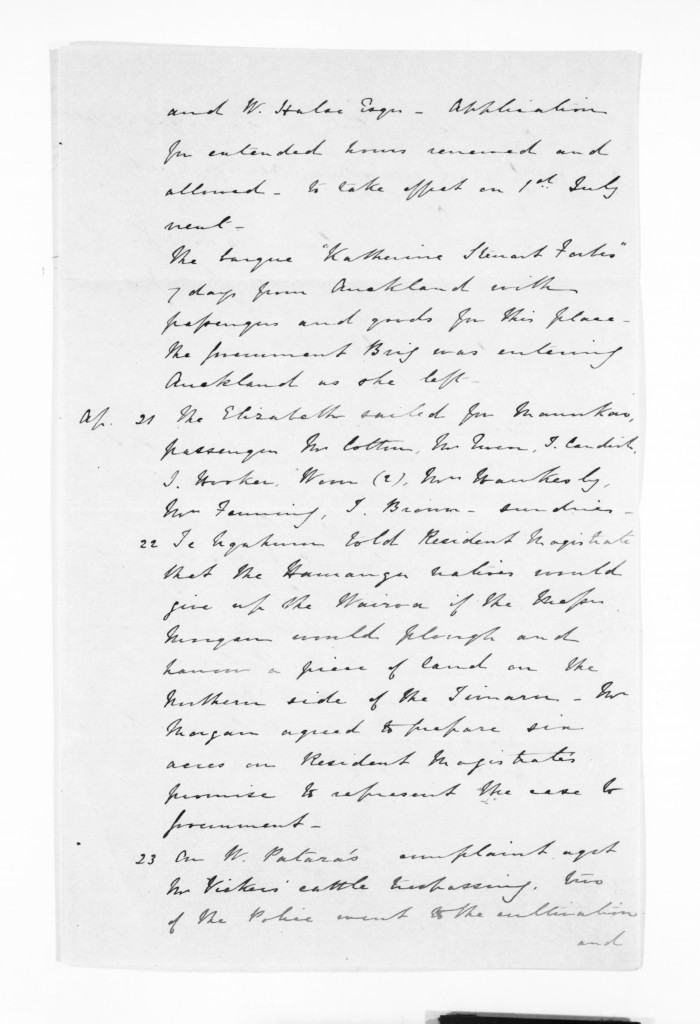 and W. Halse Esqr - Application
for extended hours renewed and
allowed - to take effect on 1st July
next -
The barque "Katherine Stewart Forbes"
7 days from Auckland with
passengers and goods for this place -
The Government Brig was entering
Auckland as she left -
Ap. 21 The Elizabeth sailed for Manukau,
passengers Mr Cotton, Mr , J. Candish,
J. Hooker, (2), Mrs Hawkesby,
Mrs Fenning, J. Brown - sundries -
22 Te Ngahuru told Resident Magistrate
that the natives would
give up the Wairoa if the Messrs
Morgan would plough and
harrow a piece of land on the
Northern side of the Timaru - Mr
Morgan agreed to prepare six
acres on Resident Magistrate's
promise to represent the case to
Government -
23 On W. Patara's complaint agst
Mr Vickers' cattle trespassing, two
of the Police went to the cultivation
and